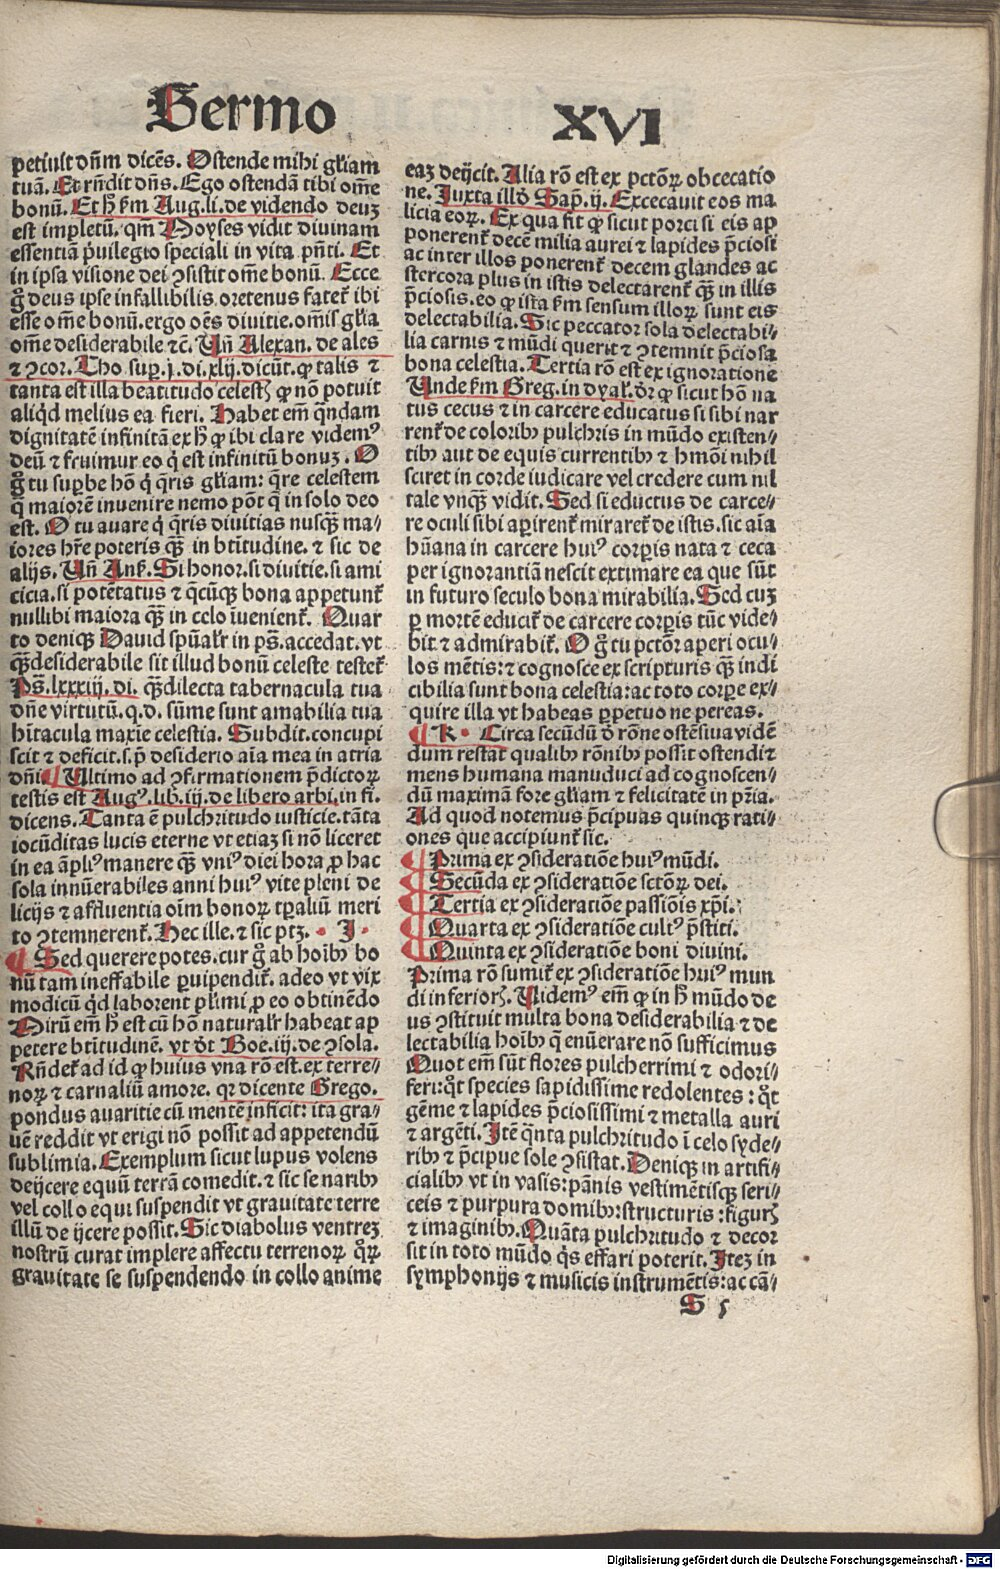 Sermo XVI
petiuit dn̄m dicēs. Ostende mihi gl̄iam
tuā. Et rn̄dit dn̄s. Ego ostendā tibi om̄e
bonū. Et h̄ ẜm Aug. li. de videndo deuꝫ
est impletū. qm̄ Moyses vidit diuinam
essentiā p̄uilegio speciali in vita pn̄ti. Et
in ipsa visione dei ꝯsistit om̄e bonū. Ecce
g̊ deus ipse infallibilis oretenus fatet᷑ ibi
esse om̄e bonū. ergo oēs diuitie. om̄is gl̄ia
om̄e desiderabile ⁊c̄. Un̄ Alexan. de ales
⁊ ꝯcor. Tho sup. j. di. xlij. dicūt. ꝙ talis ⁊
tanta est illa beatitudo celestꝭ ꝙ nō potuit
aliqd melius ea fieri. Habet em̄ qn̄dam
dignitatē infinitā ex h̄ ꝙ ibi clare videmꝰ
deū ⁊ fruimur eo q̇ est infinitū bonuꝫ. O
g̊ tu suꝑbe hō q̇ q̄ris gl̄iam: q̄re celestem
q̄ maiorē inuenire nemo pōt q̄ in solo deo
est. O tu auare q̇ q̄ris diuitias nusqȝ̄ ma⸗
iores hr̄e poteris qȝ̄ in bt̄itudine. ⁊ sic de
alijs. Un̄ Anẜ. Si honor. si diuitie. si ami
cicia. si potētatus ⁊ qcūqꝫ bona appetunt᷑
nullibi maiora qȝ̄ in celo īuenient᷑. Quar
to deniqꝫ Dauid spūalr̄ in ps̄. accedat. vt
qȝ̄ desiderabile sit illud bonū celeste testet᷑
Ps̄. lxxxiij. di. qȝ̄ dilecta tabernacula tua
dn̄e virtutū. q. d. sūme sunt amabilia tua
hītacula maxie celestia. Subdit. concupi
scit ⁊ deficit. s. p̄ desiderio aīa mea in atria
dn̄i. ¶ Ultimo ad ꝯfirmationem p̄dictoꝝ
testis est Augꝰ. lib. iij. de libero arbi. in fi.
dicens. Tanta ē pulchritudo iusticie. tāta
iocūditas lucis eterne vt etiaꝫ si nō liceret
in ea āpliꝰ manere qȝ̄ vniꝰ diei hora ꝓ hac
sola innūerabiles anni huiꝰ vite pleni de
licijs ⁊ affluentia oīm bonoꝝ tꝑaliū meri
to ꝯtemnerent᷑. Hec ille. ⁊ sic ptꝫ. · J ·
¶ Sed querere potes. cur g̊ ab hoībꝰ bo
nū tam ineffabile ꝑuipendit᷑. adeo vt vix
modicū qd laborent pl̄imi ꝓ eo obtinēdo
Mirū em̄ h̄ est cū hō naturalr̄ habeat ap
petere bt̄itudinē. vt dt Boe. iij. de ꝯsola.
Rn̄det᷑ ad id ꝙ huius vna rō est. ex terre⸗
noꝝ ⁊ carnaliū amore. qꝛ dicente Grego.
pondus auaritie cū mentē inficit: ita gra⸗
uē reddit vt erigi nō possit ad appetendū
sublimia. Exemplum sicut lupus volens
deijcere equū terrā comedit. ⁊ sic se naribꝰ
vel collo equi suspendit vt grauitate terre
illū deijcere possit. Sic diabolus ventreꝫ
nostrū curat implere affectu terrenoꝝ qꝝ
grauitate se suspendendo in collo anime
eaꝫ deijcit. Alia rō est ex pctōꝝ obcecatio
ne. Juxta illd Sap. ij. Excecauit eos ma
licia eoꝝ. Ex qua fit ꝙ sicut porci si eis ap
ponerent᷑ decē milia aurei ⁊ lapides p̄ciosi
ac inter illos ponerent᷑ decem glandes ac
stercora plus in istis delectarent᷑ qȝ̄ in illis
p̄ciosis. eo ꝙ ista ẜm sensum illoꝝ sunt eis
delectabilia. Sic peccator sola delectabi⸗
lia carnis ⁊ mūdi querit ⁊ ꝯtemnit p̄ciosa
bona celestia. Tertia rō est ex ignoratione
Unde ẜm Greg. in dyal. dr̄ ꝙ sicut hō na
tus cecus ⁊ in carcere educatus si sibi nar
rent᷑ de coloribꝰ pulchris in mūdo existen⸗
tibꝰ aut de equis currentibꝰ ⁊ hmōi nihil
sciret in corde iudicare vel credere cum nil
tale vnqȝ̄ vidit. Sed si eductus de carce⸗
re oculi sibi aperirent᷑ miraret᷑ de istis. sic aīa
hūana in carcere huiꝰ corꝑis nata ⁊ ceca
per ignorantiā nescit extimare ea que sūt
in futuro seculo bona mirabilia. Sed cuꝫ
ꝑ mortē educit᷑ de carcere corꝑis tūc vide⸗
bit ⁊ admirabit᷑. O g̊ tu pctōr aperi ocu⸗
los mētis: ⁊ cognosce ex scripturis qȝ̄ indi
cibilia sunt bona celestia: ac toto corꝑe ex⸗
quire illa vt habeas ꝑpetuo ne pereas.
¶ K · Circa secūdū d rōne ostēsiua vidē
dum restat qualibꝰ rōnibꝰ possit ostendi ⁊
mens humana manuduci ad cognoscen⸗
dū maximā fore gl̄iam ⁊ felicitatē in pr̄ia.
Ad quod notemus p̄cipuas quinqꝫ rati⸗
ones que accipiunt᷑ sic.
¶ Prima ex ꝯsideratiōe huiꝰ mūdi.
¶ Secūda ex ꝯsideratiōe sctōꝝ dei.
¶ Tertia ex ꝯsideratiōe passiōis xp̄i.
¶ Quarta ex ꝯsideratiōe cultꝰ p̄stiti.
¶ Quinta ex ꝯsideratiōe boni diuini.
Prima rō sumit᷑ ex ꝯsideratiōe huiꝰ mun
di inferiorꝭ. Uidemꝰ em̄ ꝙ in h̄ mūdo de
us ꝯstituit multa bona desiderabilia ⁊ de
lectabilia hoībꝰ q̄ enūerare nō sufficimus
Quot em̄ sūt flores pulcherrimi ⁊ odori⸗
feri: qt species sapidissime redolentes: qt
gēme ⁊ lapides p̄ciosissimi ⁊ metalla auri
⁊ argēti. Itē qn̄ta pulchritudo ī celo syde⸗
ribꝰ ⁊ p̄cipue sole ꝯsistat. Deniqꝫ in artifi⸗
cialibꝰ vt in vasis: pānis vestimētisqꝫ seri⸗
ceis ⁊ purpura domibꝰ: structuris: figurꝭ
⁊ imaginibꝰ. Quāta pulchritudo ⁊ decor
sit in toto mūdo qs effari poterit. Iteꝫ in
symphonijs ⁊ musicis instrumētis: ac cā⸗
S 5
Digitalisierung gefördert durch die Deutsche Forschungsgemeinschaft - DFG